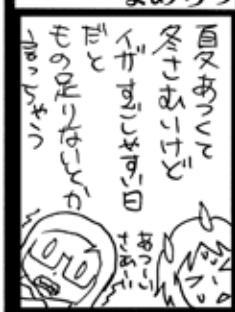 夏あつくて
冬さむいけど
イザすごしやすい日
だと
もの足りないとか
言っちゃう
あつ〜い
さむ〜い